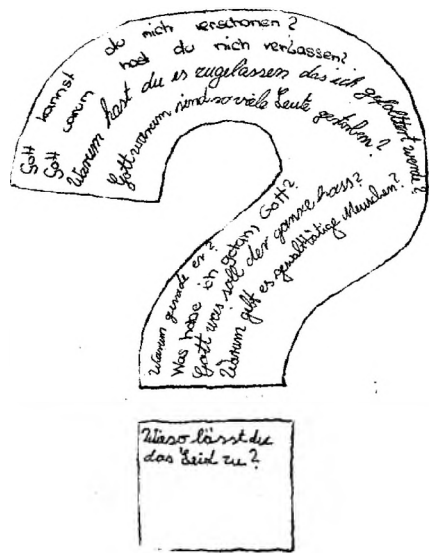 Gott kannst du mich verschonen?
Gott warum hast du mich verlassen?
Warum hast du es zugelassen das ich gefoltert werde?
Gott warum sind so viele Leute gestorben?
Warum gerade er?
Was habe ich getan, Gott?
Gott was soll der ganze hass?
Warum gibt es gewalttätige Menschen?
Wieso lässt du
das Leid zu?